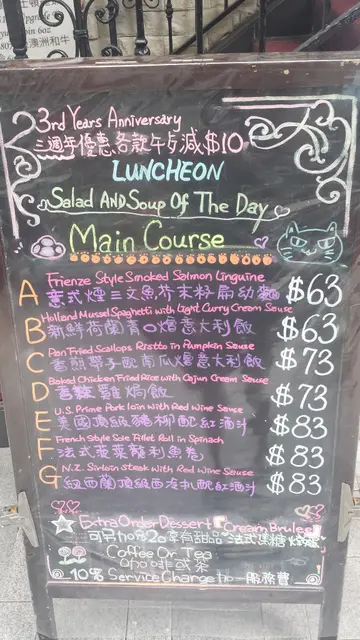 3rd Years Anniversary
三週年優惠各款午市減$10
LUNCHEON
Salad AND Soup Of The Day
Main Course
A Frienze Style Smoked Salmon Linguine $63
意式煙三文魚芥末籽扁幼麵
B Holland Mussel Spaghetti with Light Curry Cream Sause $63
新鮮荷蘭青口燴意大利飯
C Pan Fried Scallops Risotto in Pumpkin Sause $73
香煎帶子配南瓜燴意大利飯
D Baked Chicken Fried Rice with Cajun Cream Sause $73
雞焗飯
E U.S. Prime Pork loin with Red Wine Sause $83
美國頂級豬柳配紅酒汁
F French Style Sole Fillet Roll in Spinach $83
法式菠菜龍利魚卷
G N.Z. Sirloin Steak with Red Wine Sause $83
紐西蘭頂級西冷扒配紅酒汁
Extra Order Dessert "Cream Brulee"
可另加$20享有甜品"法式焦糖燉蛋"
Coffee Or Tea
咖啡或茶
10% Service Charge 加一服務費